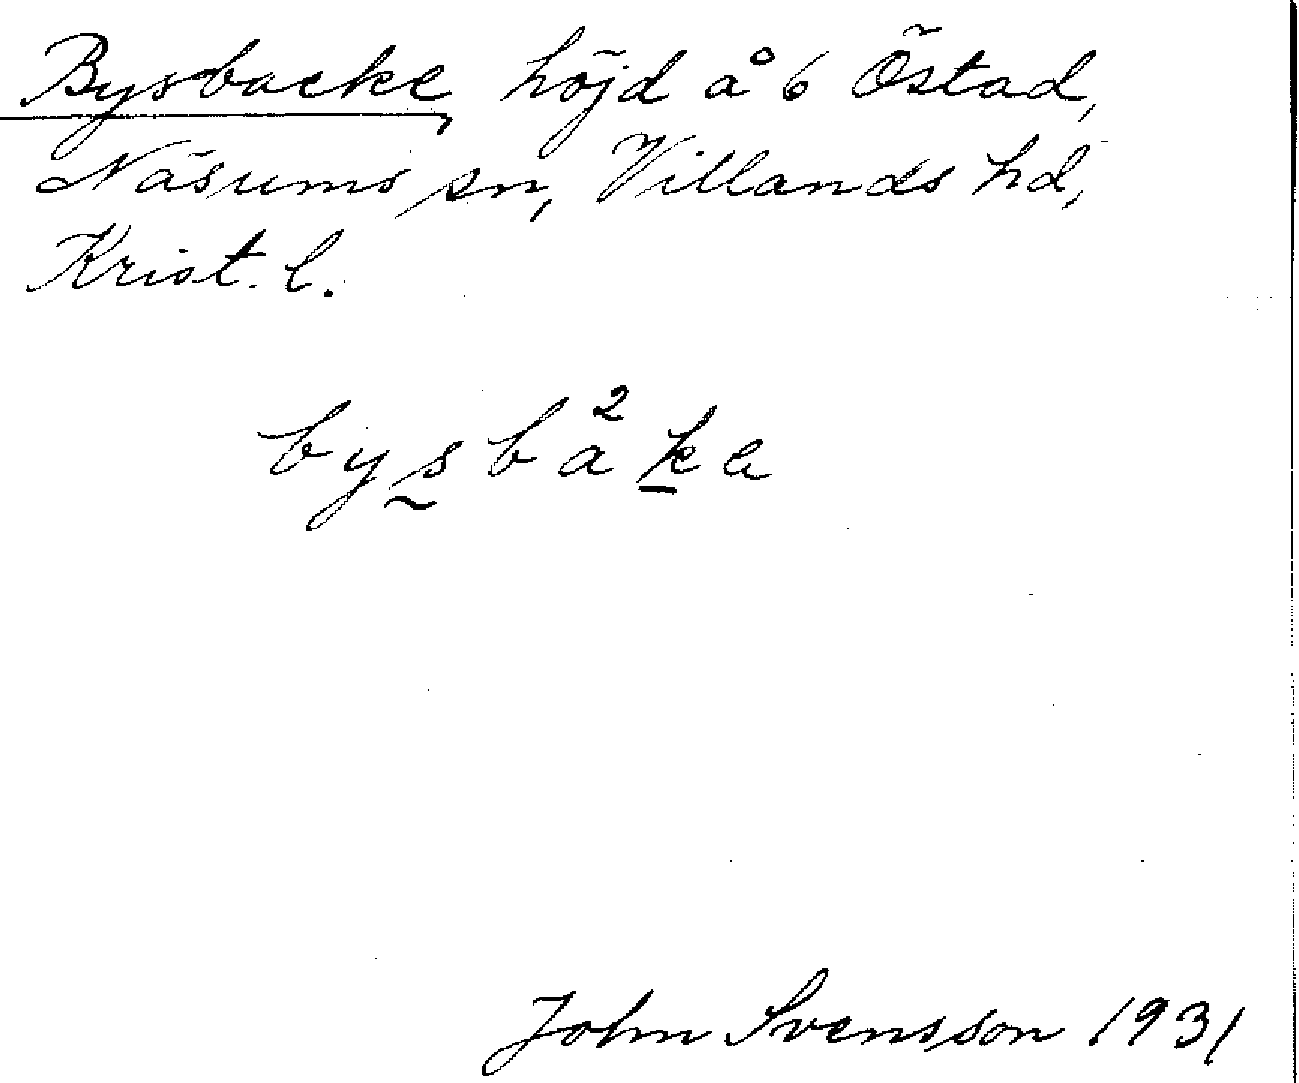 Bysbacke, höjd å 6 Östad,
Näsums sn, Villands hd,
Krist. l.
bysba²ka
John Svensson 1931